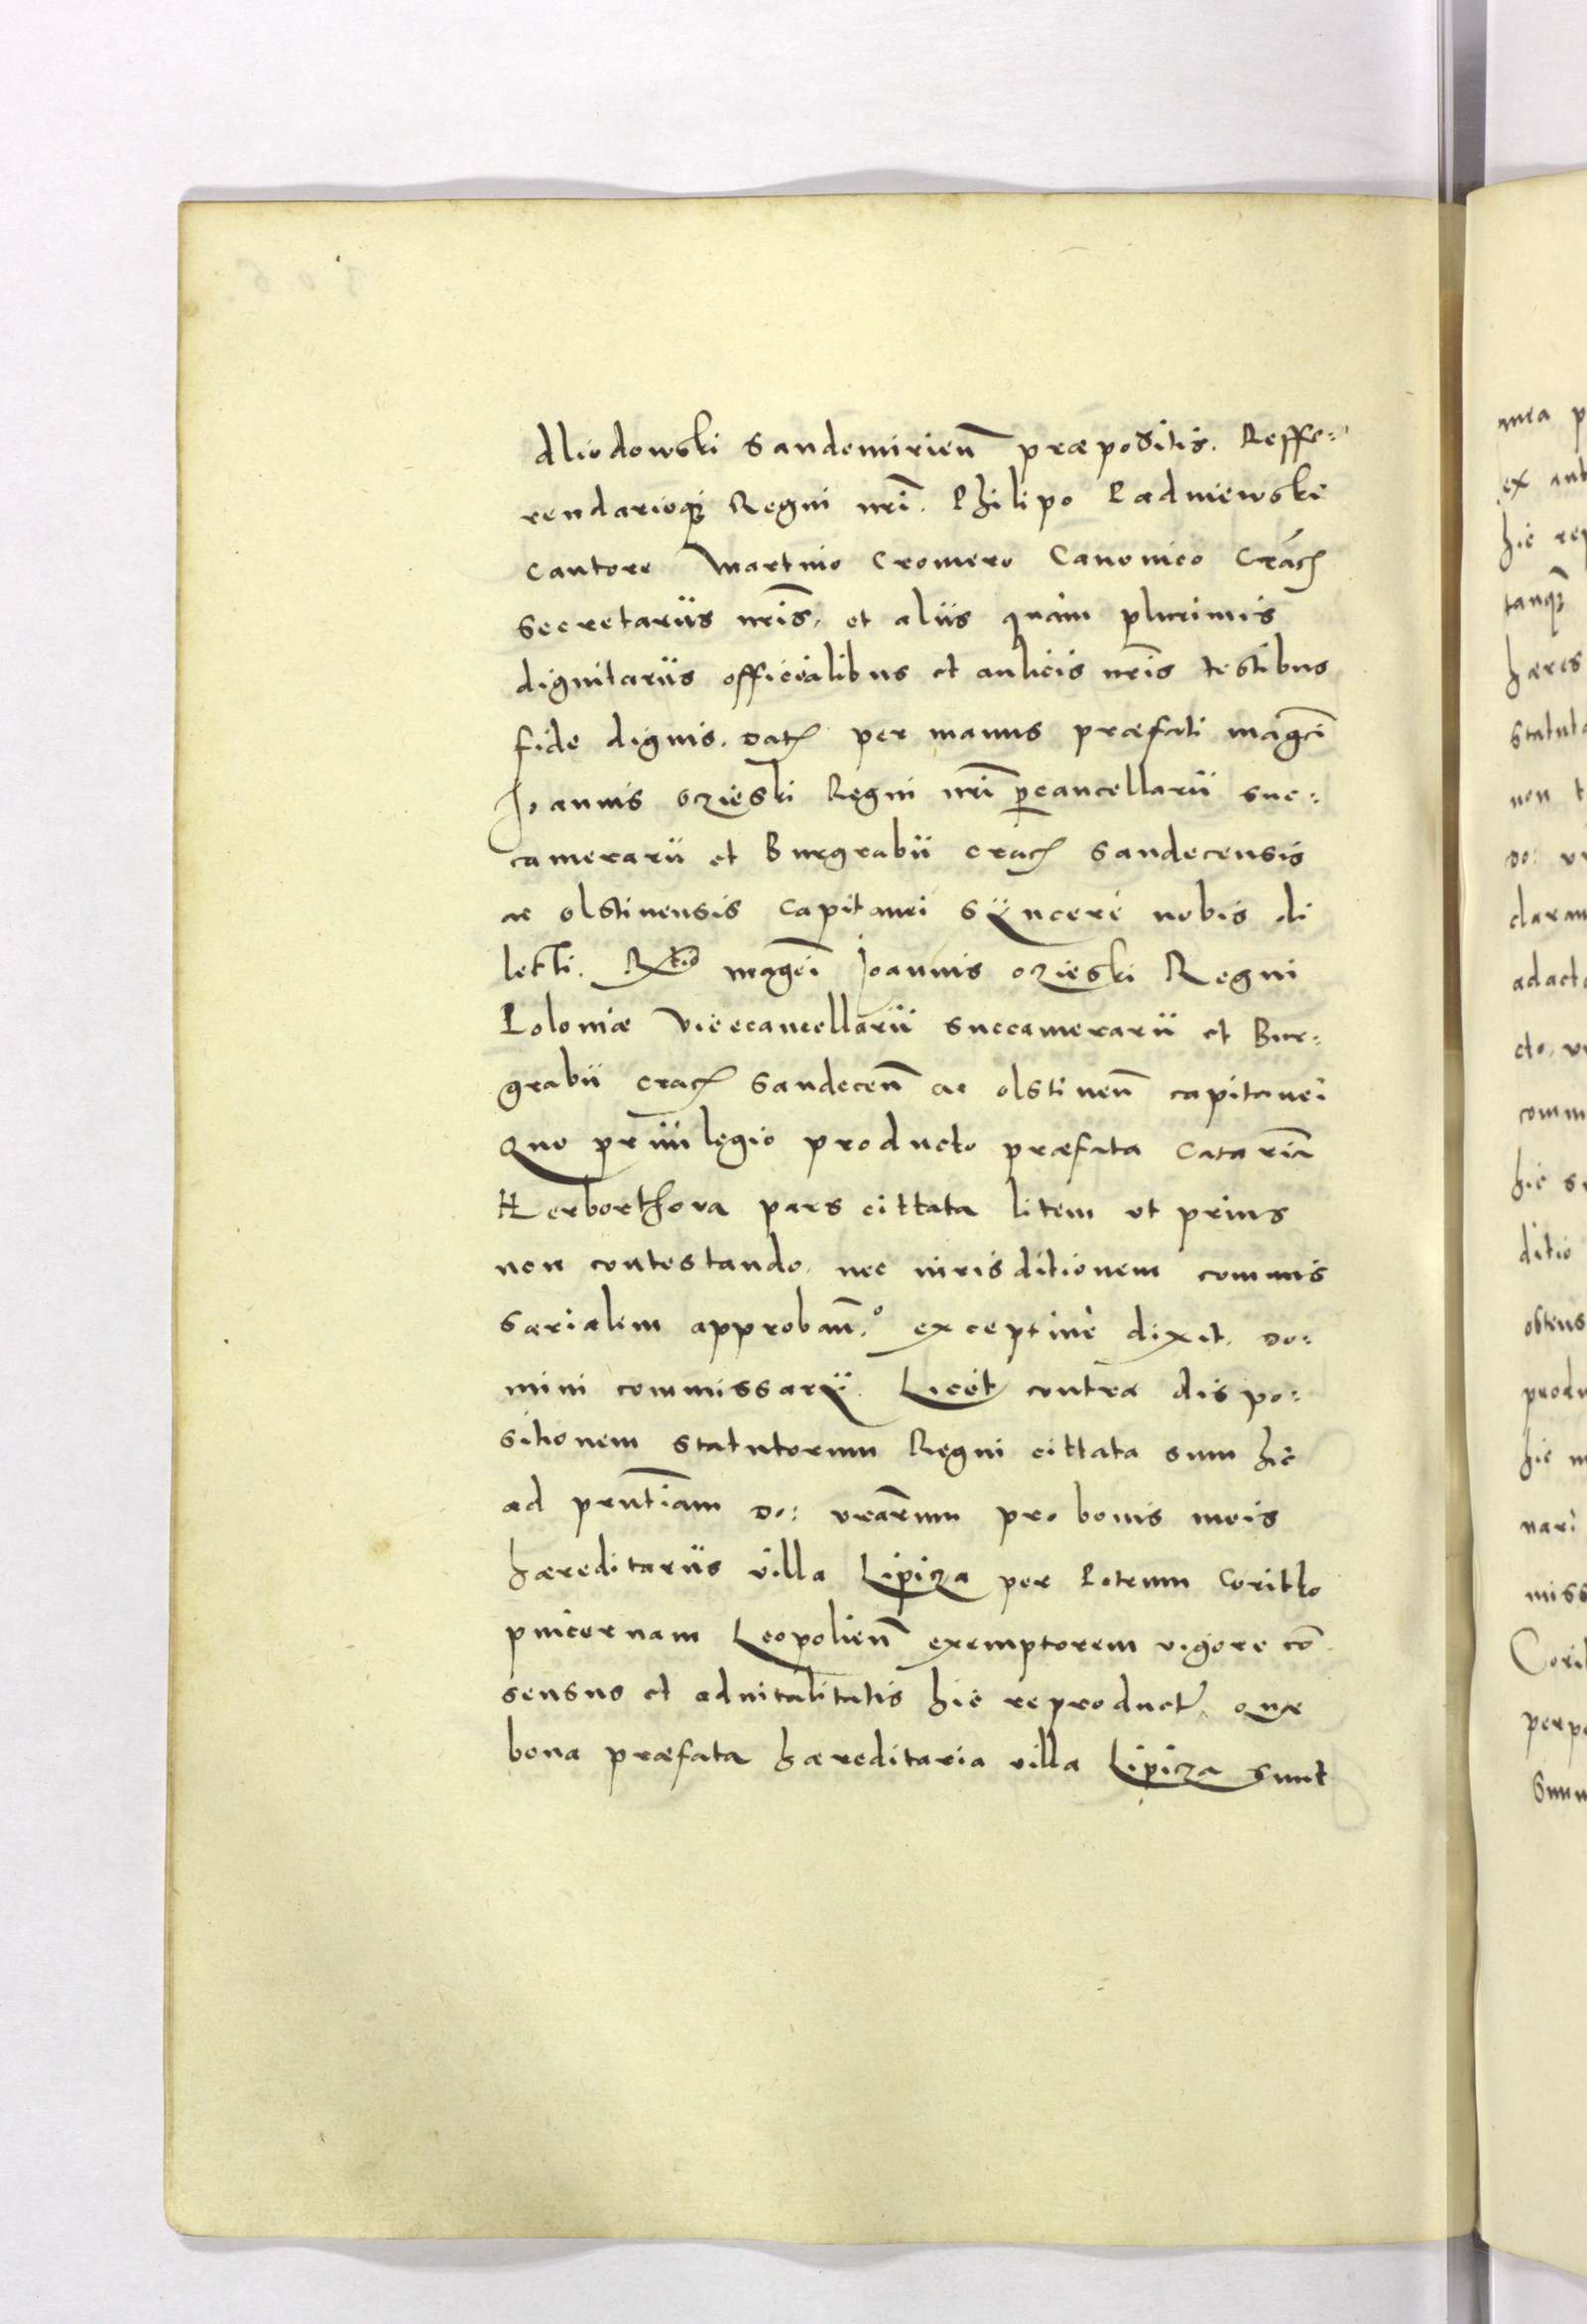 Miodowski Sandomirien̄ præpositis. Reffe:
rendarioq; Regni nr̄i. Philipo Padniewski
Cantore Martino Cromero Canonico Crac̄
Secretariis nr̄is, et aliis quàm plurimis
dignitariis officialibus et aulicis nr̄is testibus
fide dignis. Dat̄ per manus præfati magc̄i
Joannis oczieski Regni nr̄i p̄cancellarii suc:
camerarii et Burgrabii Crac̄ Sandecensis
ac olstinensis Capitanei Sÿncere nobis di
letti. R̄tio magc̄i Joannis ozieski Regni
Poloniæ Vicecancellarii Succamerarii et Bur:
grabii Crac̄ Sandecen̄ ac olstinen̄ capitanei
Quo priuilegio producto præfata Catarīa
Herborthova pars cittata litem ut prius
non contestando, nec iurisditionem commis
sarialem approban̄.º exceptiue dixit. Do:
mini commissarÿ. Licet contra dispo:
sitionem statutorum Regni cittata sum hic
ad prnt̄iam Do: vrārum pro bonis meis
hæreditariis villa Lipicza per Petrum Coritko
pincernam Leopolien̄ exemptorem vigore cō
sensus et aduitalitatis hic reproduct̄. Quæ
bona præfata hæreditaria villa Lipicza sunt